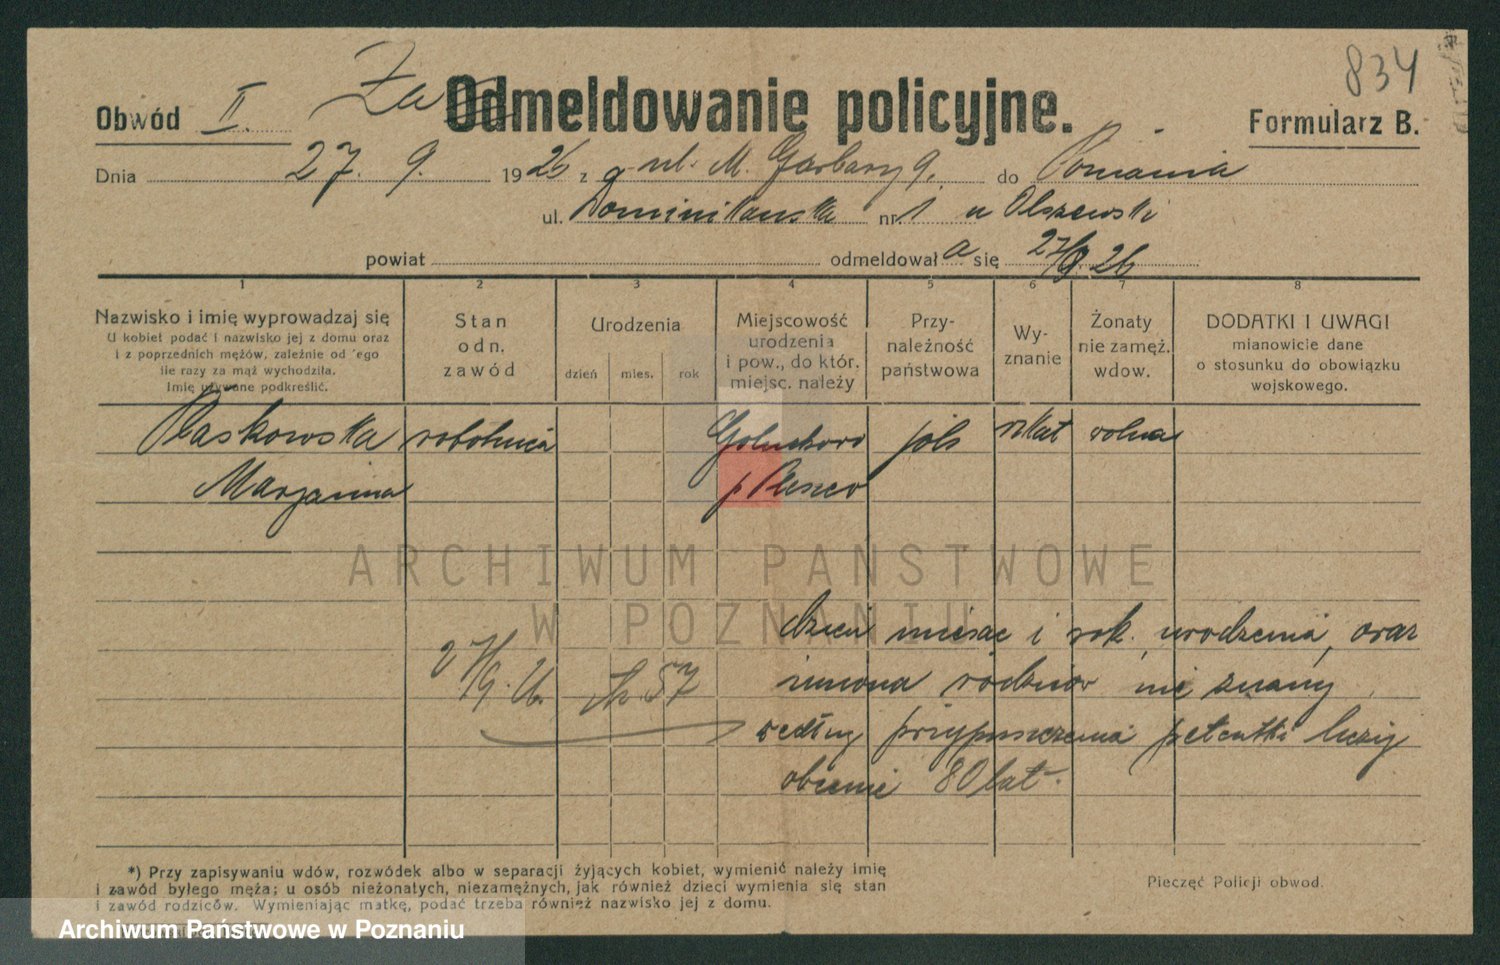 834
Obwód II. Za Odmeldowanie policyjne. Formularz B.
Dnia 27. 9. 1926 z ul. M. Garbary 9. do Poznania
ul. Dominikańska nr. 1 u Olszewski
powiat odmeldował a się 27/9. 26
1 2 3 4 5 6 7 8
Nazwisko i imię wyprowadzaj się
U kobiet podać i nazwisko jej z domu oraz
i z poprzednich mężów, zależnie od 'ego
ile razy za mąż wychodziła.
Imię używane podkreślić.
Stan
odn.
zawód
Urodzenia
dzień mies. rok
Miejscowość
urodzenia
i pow., do któr.
miejsc. należy
Przy-
należność
państwowa
Wy-
znanie
Żonaty
nie zamęż.
wdow.
DODATKI I UWAGI
mianowicie dane
o stosunku do obowiązku
wojskowego.
Płaskowska robotnica Gołuchowo pols rzkat wolna
Marjanna p Plesze
ARCHIWUM PAŃSTWOWE
W POZNANIU
dzień miesiąc i rok urodzenia, oraz
imiona rodziców nie znany
27/9. 26. 57
według przypuszczenia petentki liczy
obecnie 80 lat.
*) Przy zapisywaniu wdów, rozwódek albo w separacji żyjących kobiet, wymienić należy imię
i zawód byłego męża; u osób nieżonatych, niezamężnych, jak również dzieci wymienia się stan
i zawód rodziców. Wymieniając matkę, podać trzeba również nazwisko jej z domu.
Pieczęć Policji obwod.
Archiwum Państwowe w Poznaniu